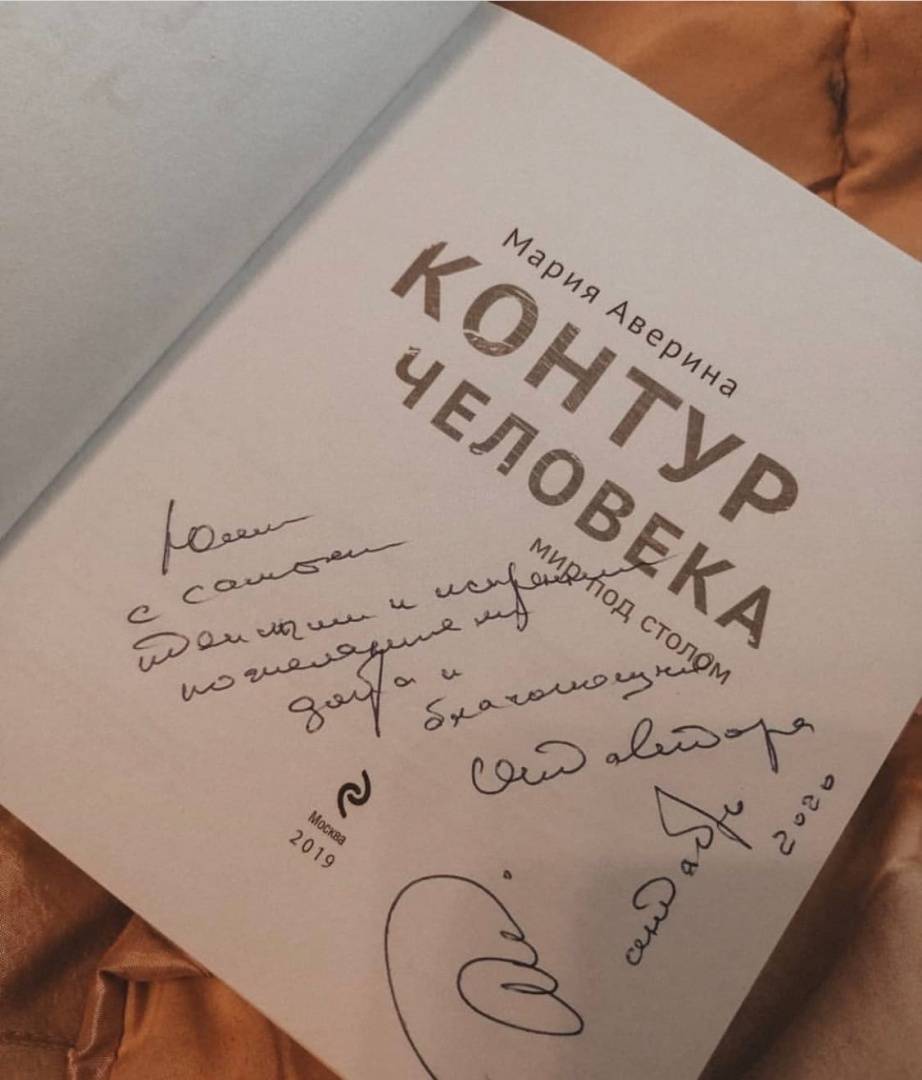 Мария Аверина
КОНТУР
ЧЕЛОВЕКА
мир под столом
Юлии
с самыми
и искренними
пожеланиями
добра и
От автора
сентябрь
2020
Москва
2019